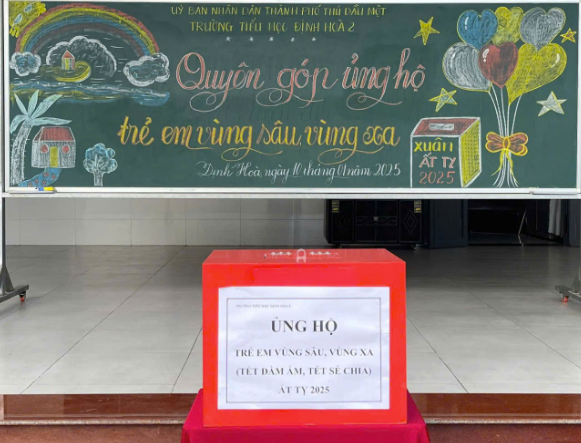 UỶ BAN NHÂN DÂN THÀNH PHỐ THỦ DẦU MỘT
TRƯỜNG TIỂU HỌC ĐỊNH HOÀ 2
Quyên góp ủng hộ
trẻ em vùng sâu, vùng xa
Định Hoà, ngày 10 tháng 01 năm 2025
XUÂN
ẤT TỴ
2025
TRƯỜNG TIỂU HỌC ĐỊNH HOÀ 2
ỦNG HỘ
TRẺ EM VÙNG SÂU, VÙNG XA
(TẾT ĐẦM ẤM, TẾT SẺ CHIA)
ẤT TỴ 2025